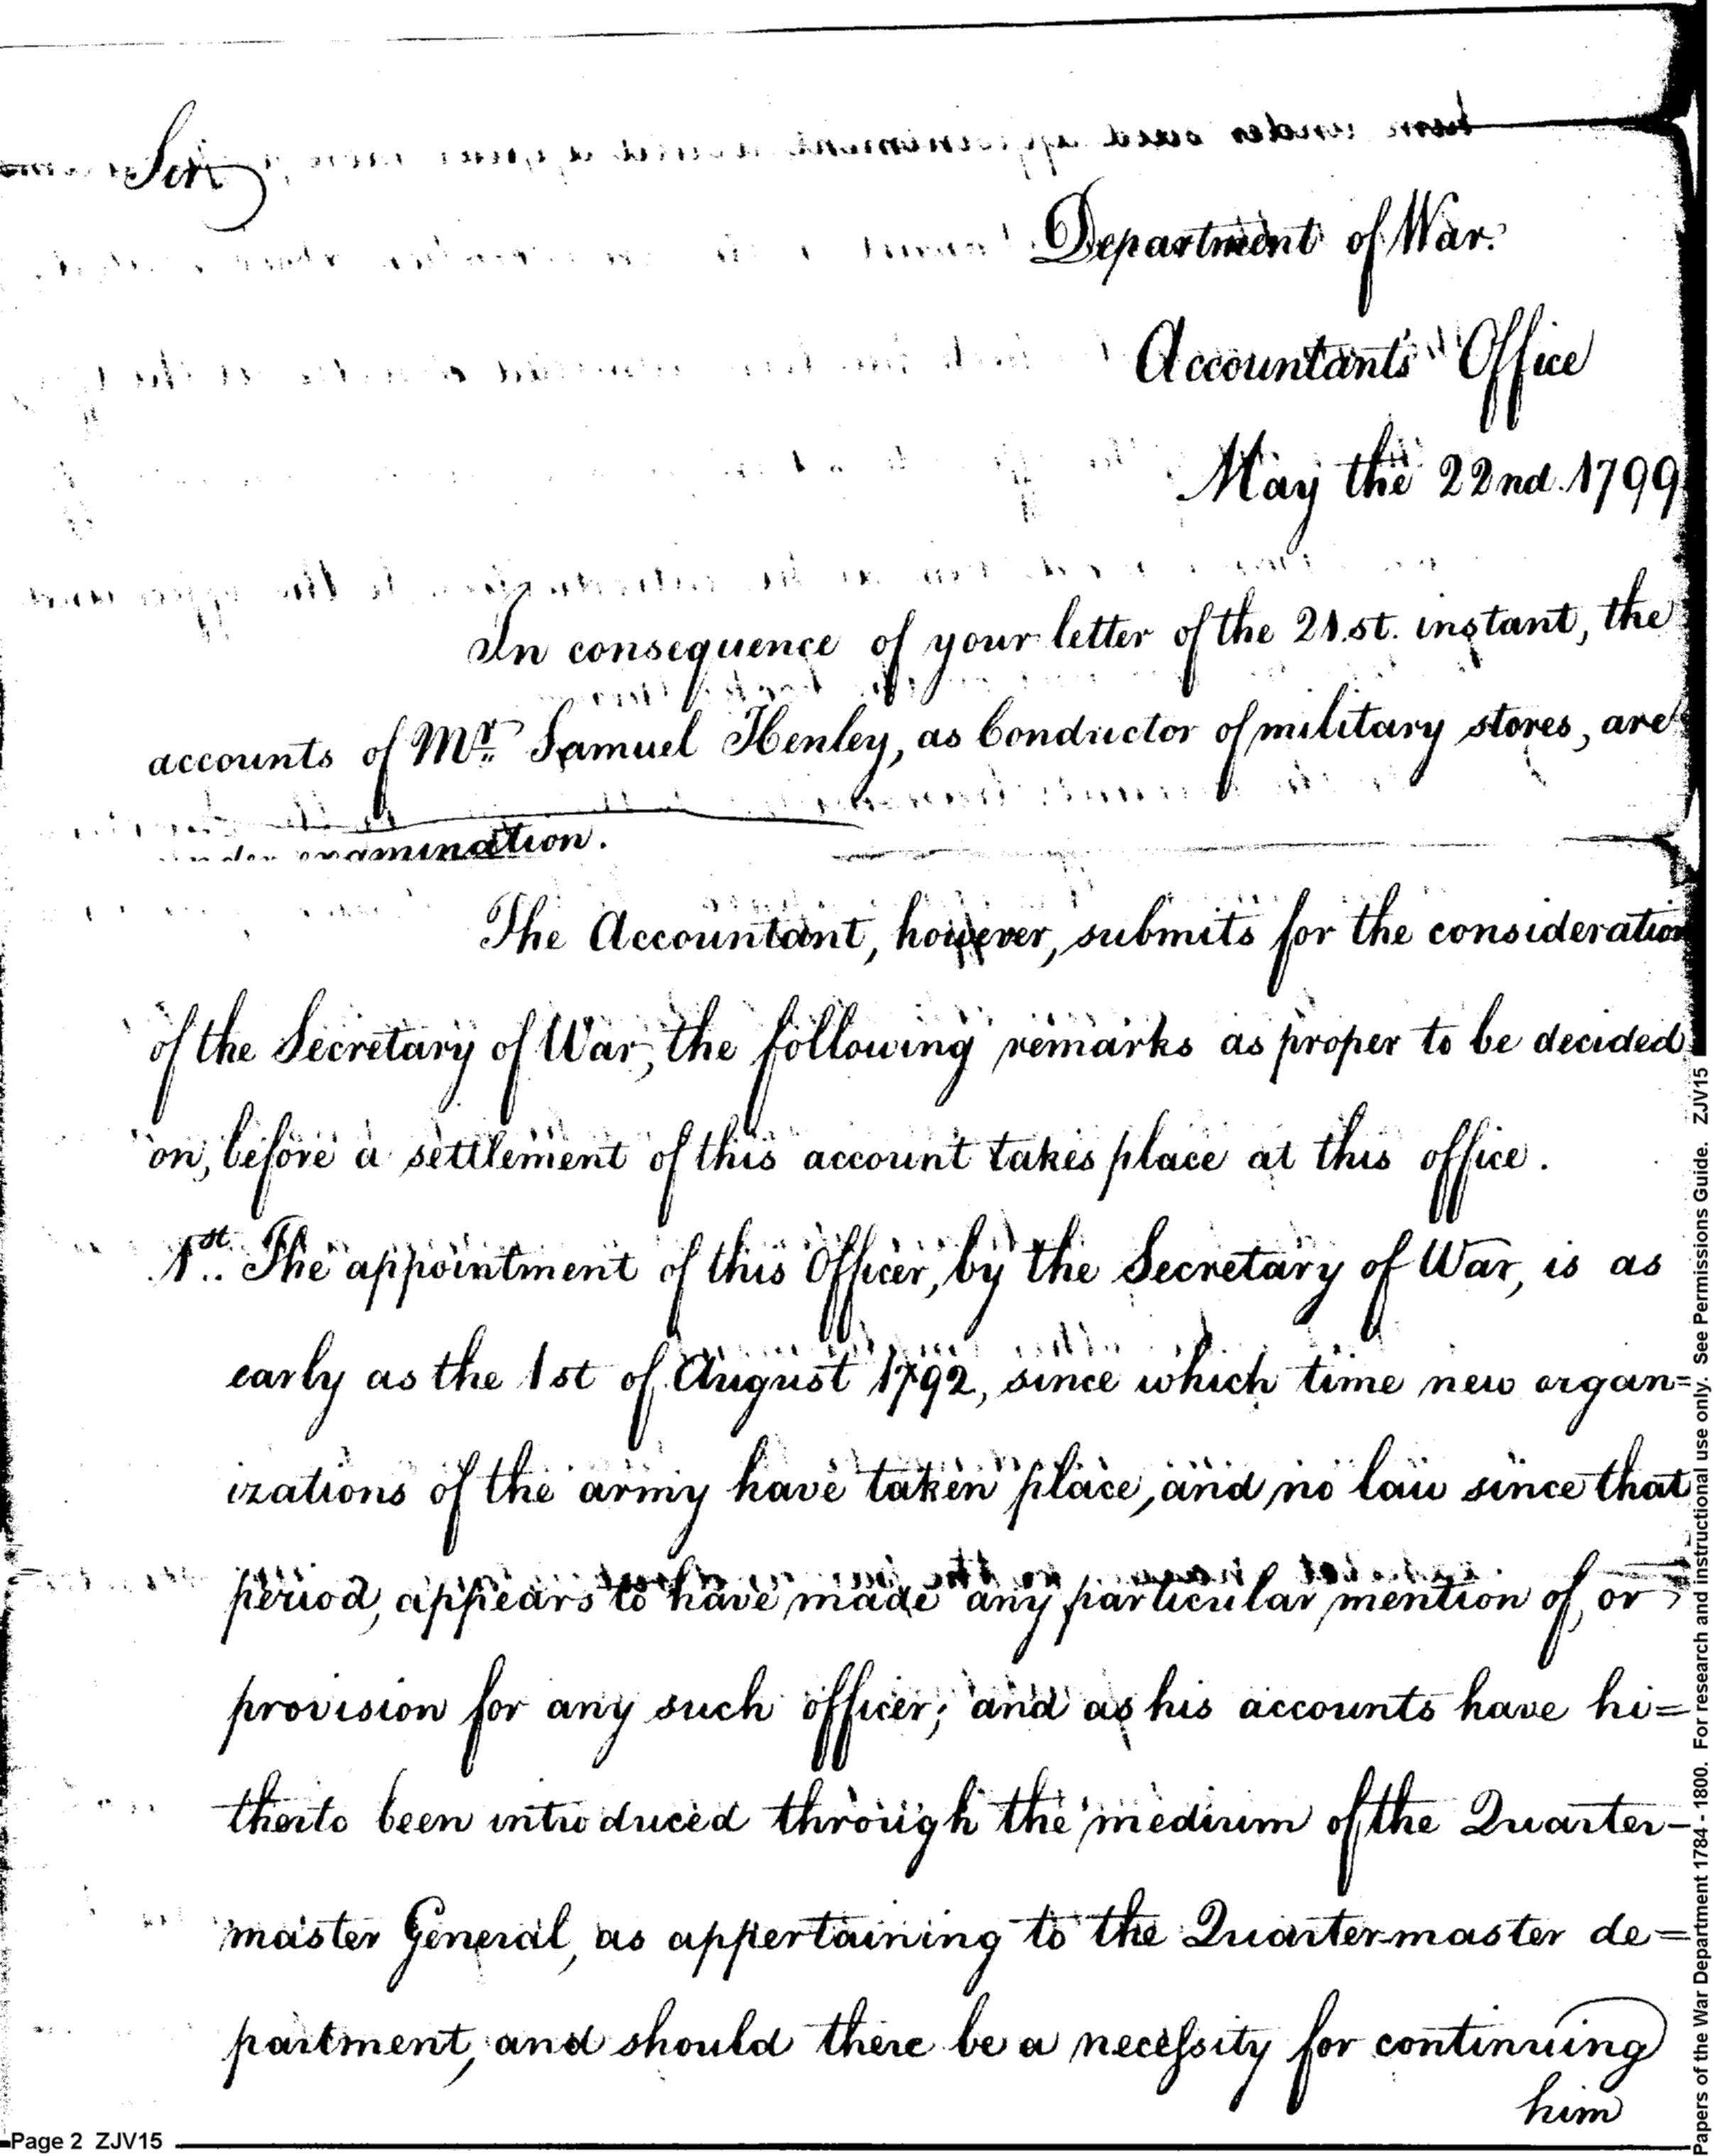 Sir
Department of War.
Accountants Office
May the 22nd. 1799
In consequence of your letter of the 21.st. instant, the
accounts of Mr. Samuel Henley, as Conductor of military stores, are
under examination.
The Accountant, however, submits for the consideration
of the Secretary of War, the following remarks as proper to be decided
on, before a settlement of this account takes place at this office.
1st. The appointment of this Officer, by the Secretary of War, is as
early as the 1st of August 1792, since which time new organ=
izations of the army have taken place, and no law since that
period, appears to have made any particular mention of, or
provision for any such officer; and as his accounts have hi=
therto been introduced through the medium of the Quarter-
master General, as appertaining to the Quartermaster de=
partment, and should there be a necessity for continuing
him
Page 2 ZJV15
Papers of the War Department 1784 - 1800. For research and instructional use only. See Permissions Guide. ZJV15